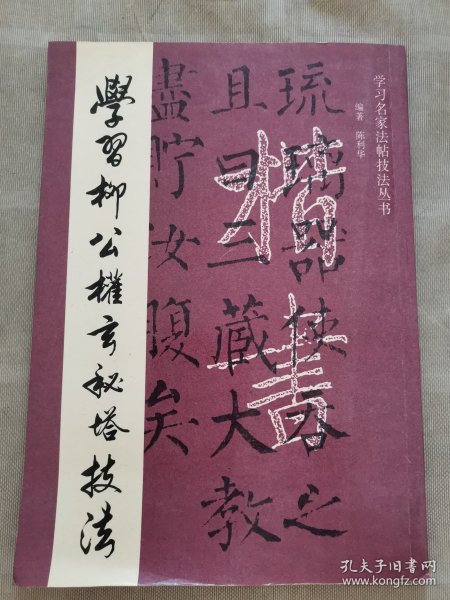 学习名家法帖技法丛书
编著 陈利华
楷書
琉璃器使吞之
且曰三藏大教
盡貯汝腹矣
學習柳公權玄秘塔技法
孔夫子旧书网
www.kongfz.com